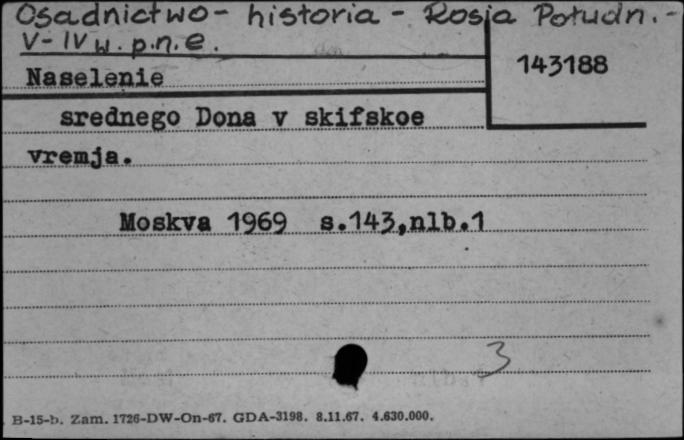 Osadnictwo - historia - Rosja Połudn. -
V-IV w. p.n.e.
143188
Naselenie
srednego Dona v skifskoe
vremja.
Moskva 1969 s.143,nlb.1
3
B-15-b. Zam. 1726-DW-On-67. GDA-3198. 8.11.67. 4.630.000.